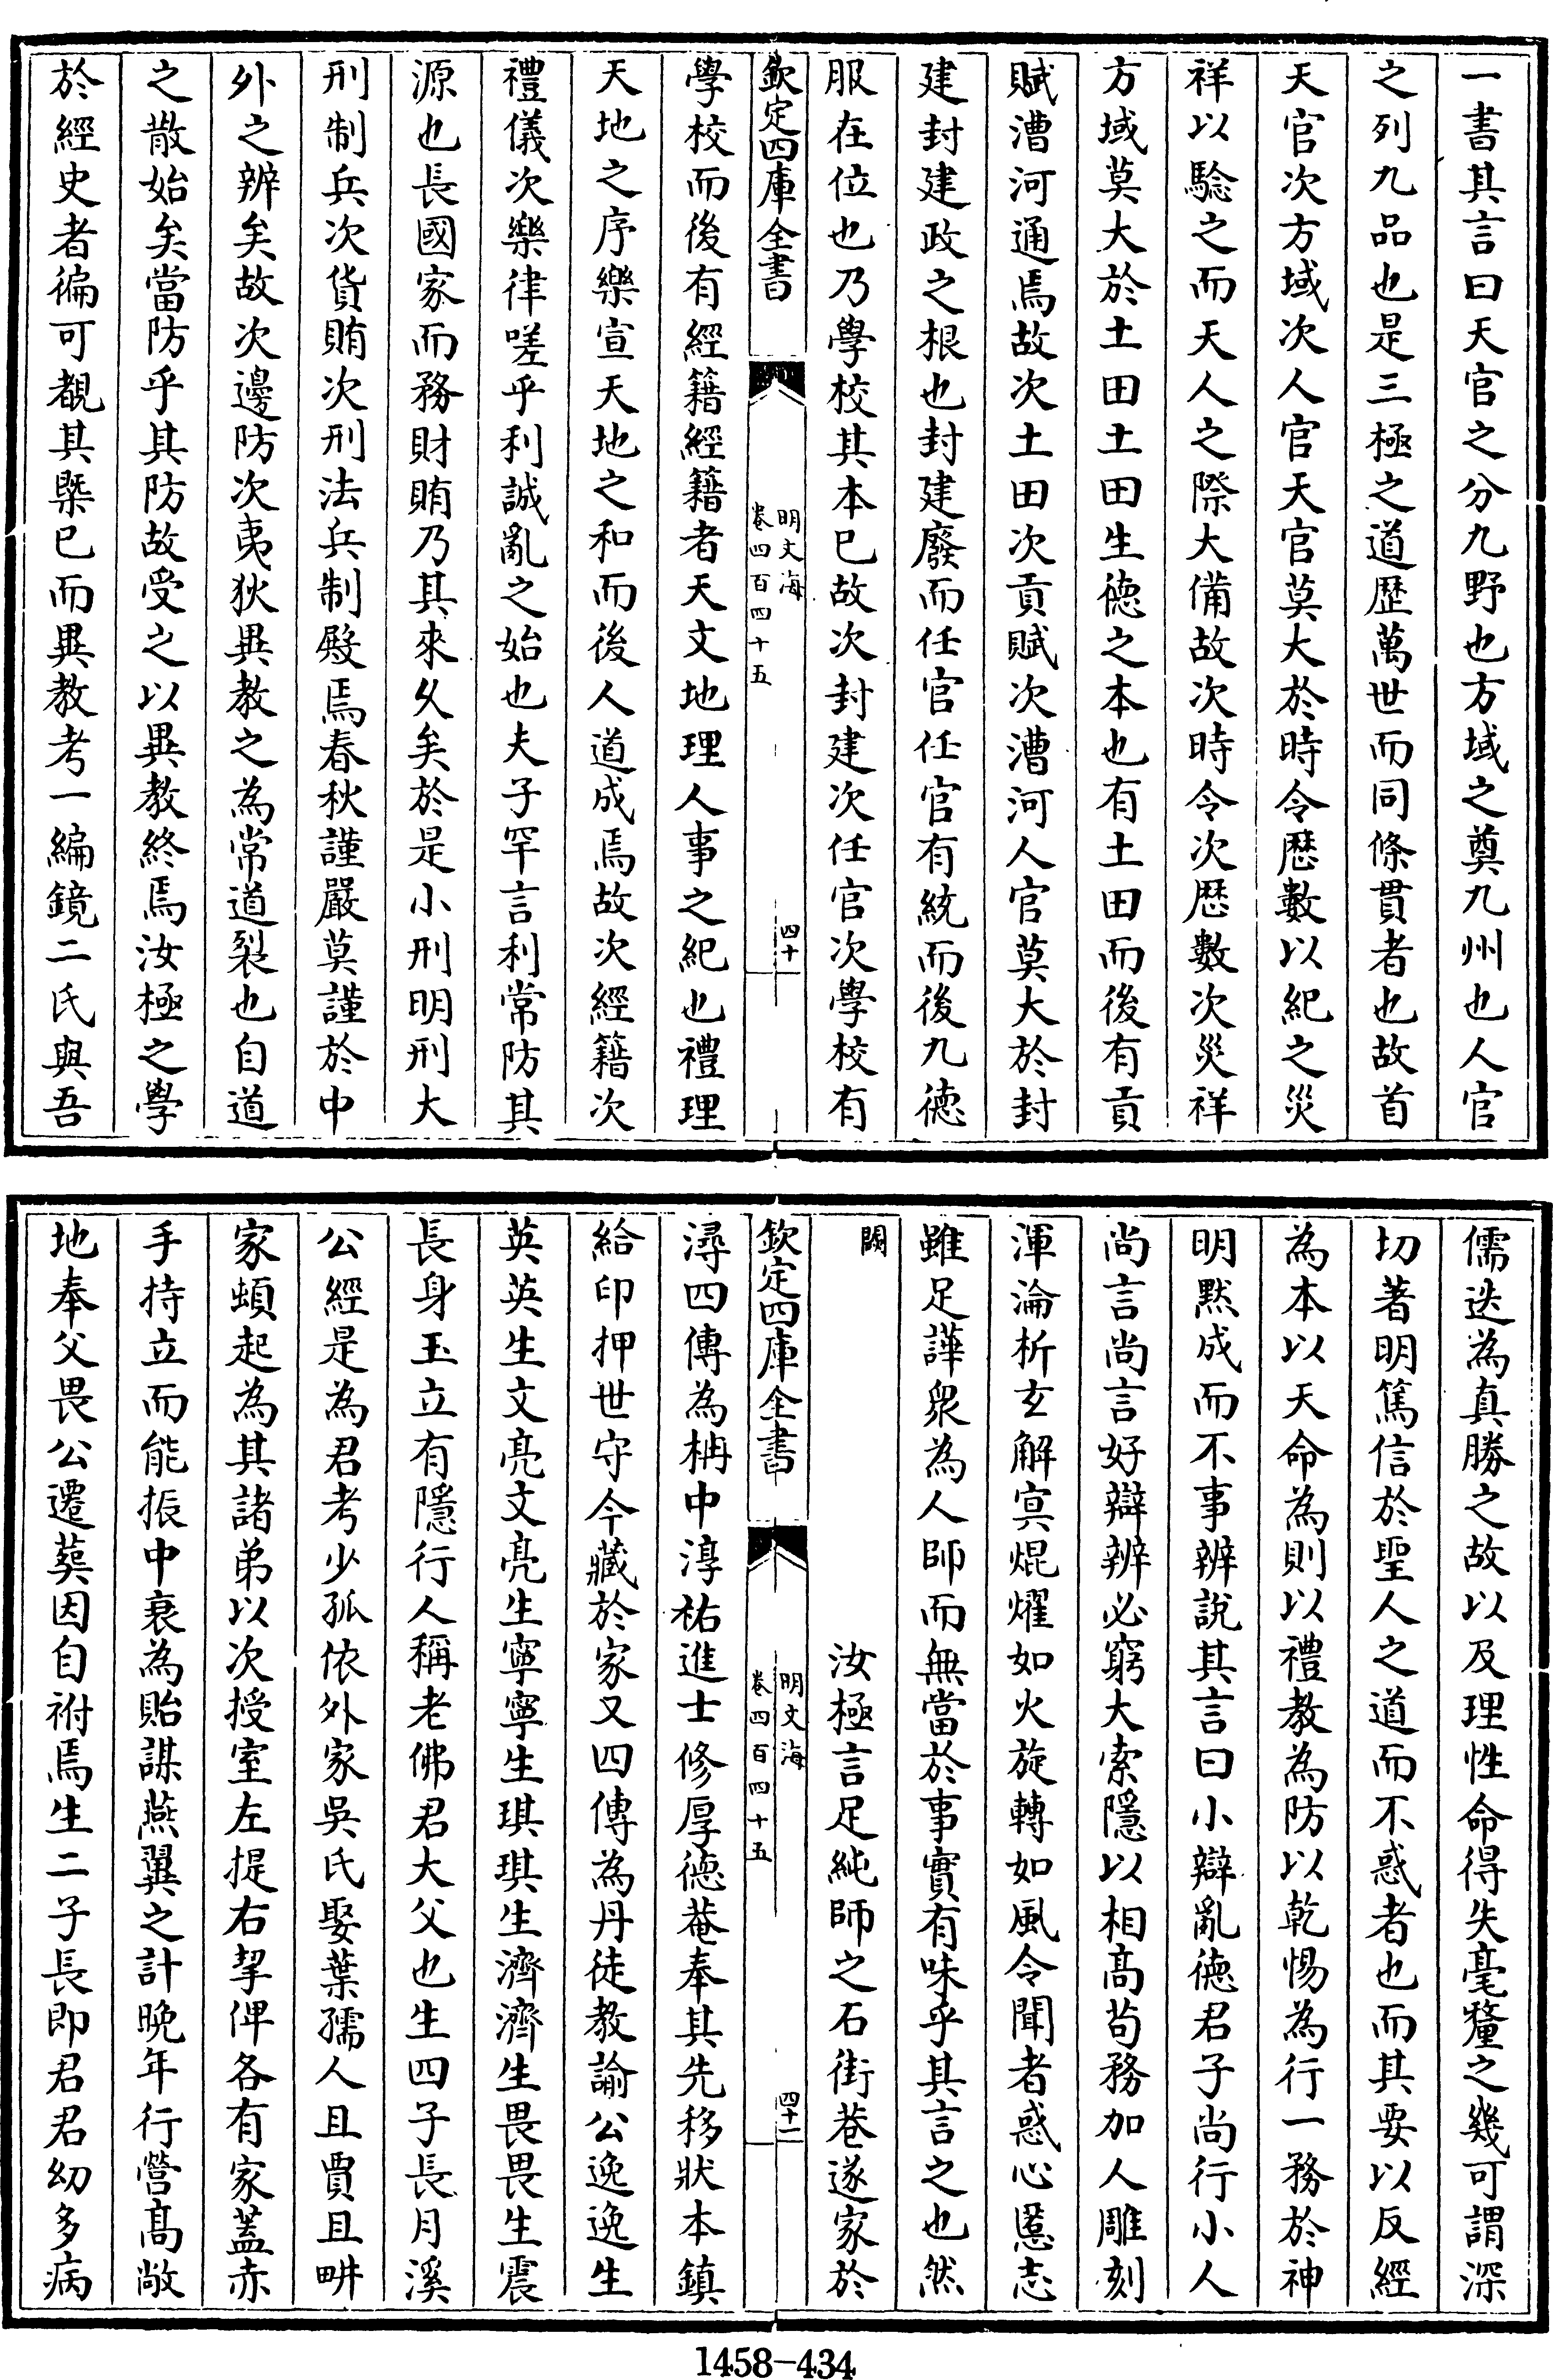 一書其言曰天官之分九野也方域之奠九州也人官
之列九品也是三極之道歴萬世而同條貫者也故首
天官次方域次人官天官莫大於時令歴數以紀之災
祥以騐之而天人之際大備故次時令次歴數次災祥
方域莫大於土田土田生徳之本也有土田而後有貢
賦漕河通焉故次土田次貢賦次漕河人官莫大於封
建封建政之根也封建廢而任官任官有統而後九徳
服在位也乃學校其本已故次封建次任官次學校有
欽定四庫全書
明文海
卷四百四十五
四十
學校而後有經籍經籍者天文地理人事之紀也禮理
天地之序樂宣天地之和而後人道成焉故次經籍次
禮儀次樂律嗟乎利誠亂之始也夫子罕言利常防其
源也長國家而務財賄乃其來乆矣於是小刑明刑大
刑制兵次貨賄次刑法兵制殿焉春秋謹嚴莫謹於中
外之辨矣故次邊防次夷狄異教之為常道裂也自道
之散始矣當防乎其防故受之以異教終焉汝極之學
於經史者徧可覩其槩已而異教考一編鏡二氏與吾
儒迭為真勝之故以及理性命得失毫釐之幾可謂深
切著明篤信於聖人之道而不惑者也而其要以反經
為本以天命為則以禮教為防以乾惕為行一務於神
明黙成而不事辨說其言曰小辯亂徳君子尚行小人
尚言尚言好辯辨必窮大索隱以相髙茍務加人雕刻
渾淪析玄解寘焜燿如火旋轉如風令聞者惑心慝志
雖足譁衆為人師而無當於事實有味乎其言之也然
闕
汝極言足純師之石街巷遂家於
欽定四庫全書
明文海
卷四百四十五
四十一
潯四傳為柟中淳祐進士修厚徳菴奉其先移狀本鎮
給印押世守今藏於家又四傳為丹徒教諭公逸逸生
英英生文亮文亮生寧寧生琪琪生濟濟生畏畏生震
長身玉立有隱行人稱老佛君大父也生四子長月溪
公經是為君考少孤依外家吳氏娶葉孺人且賈且畊
家頓起為其諸弟以次授室左提右挈俾各有家蓋赤
手持立而能振中衰為貽謀燕翼之計晩年行營髙敞
地奉父畏公遷葬因自祔焉生二子長即君君幼多病
1458-434